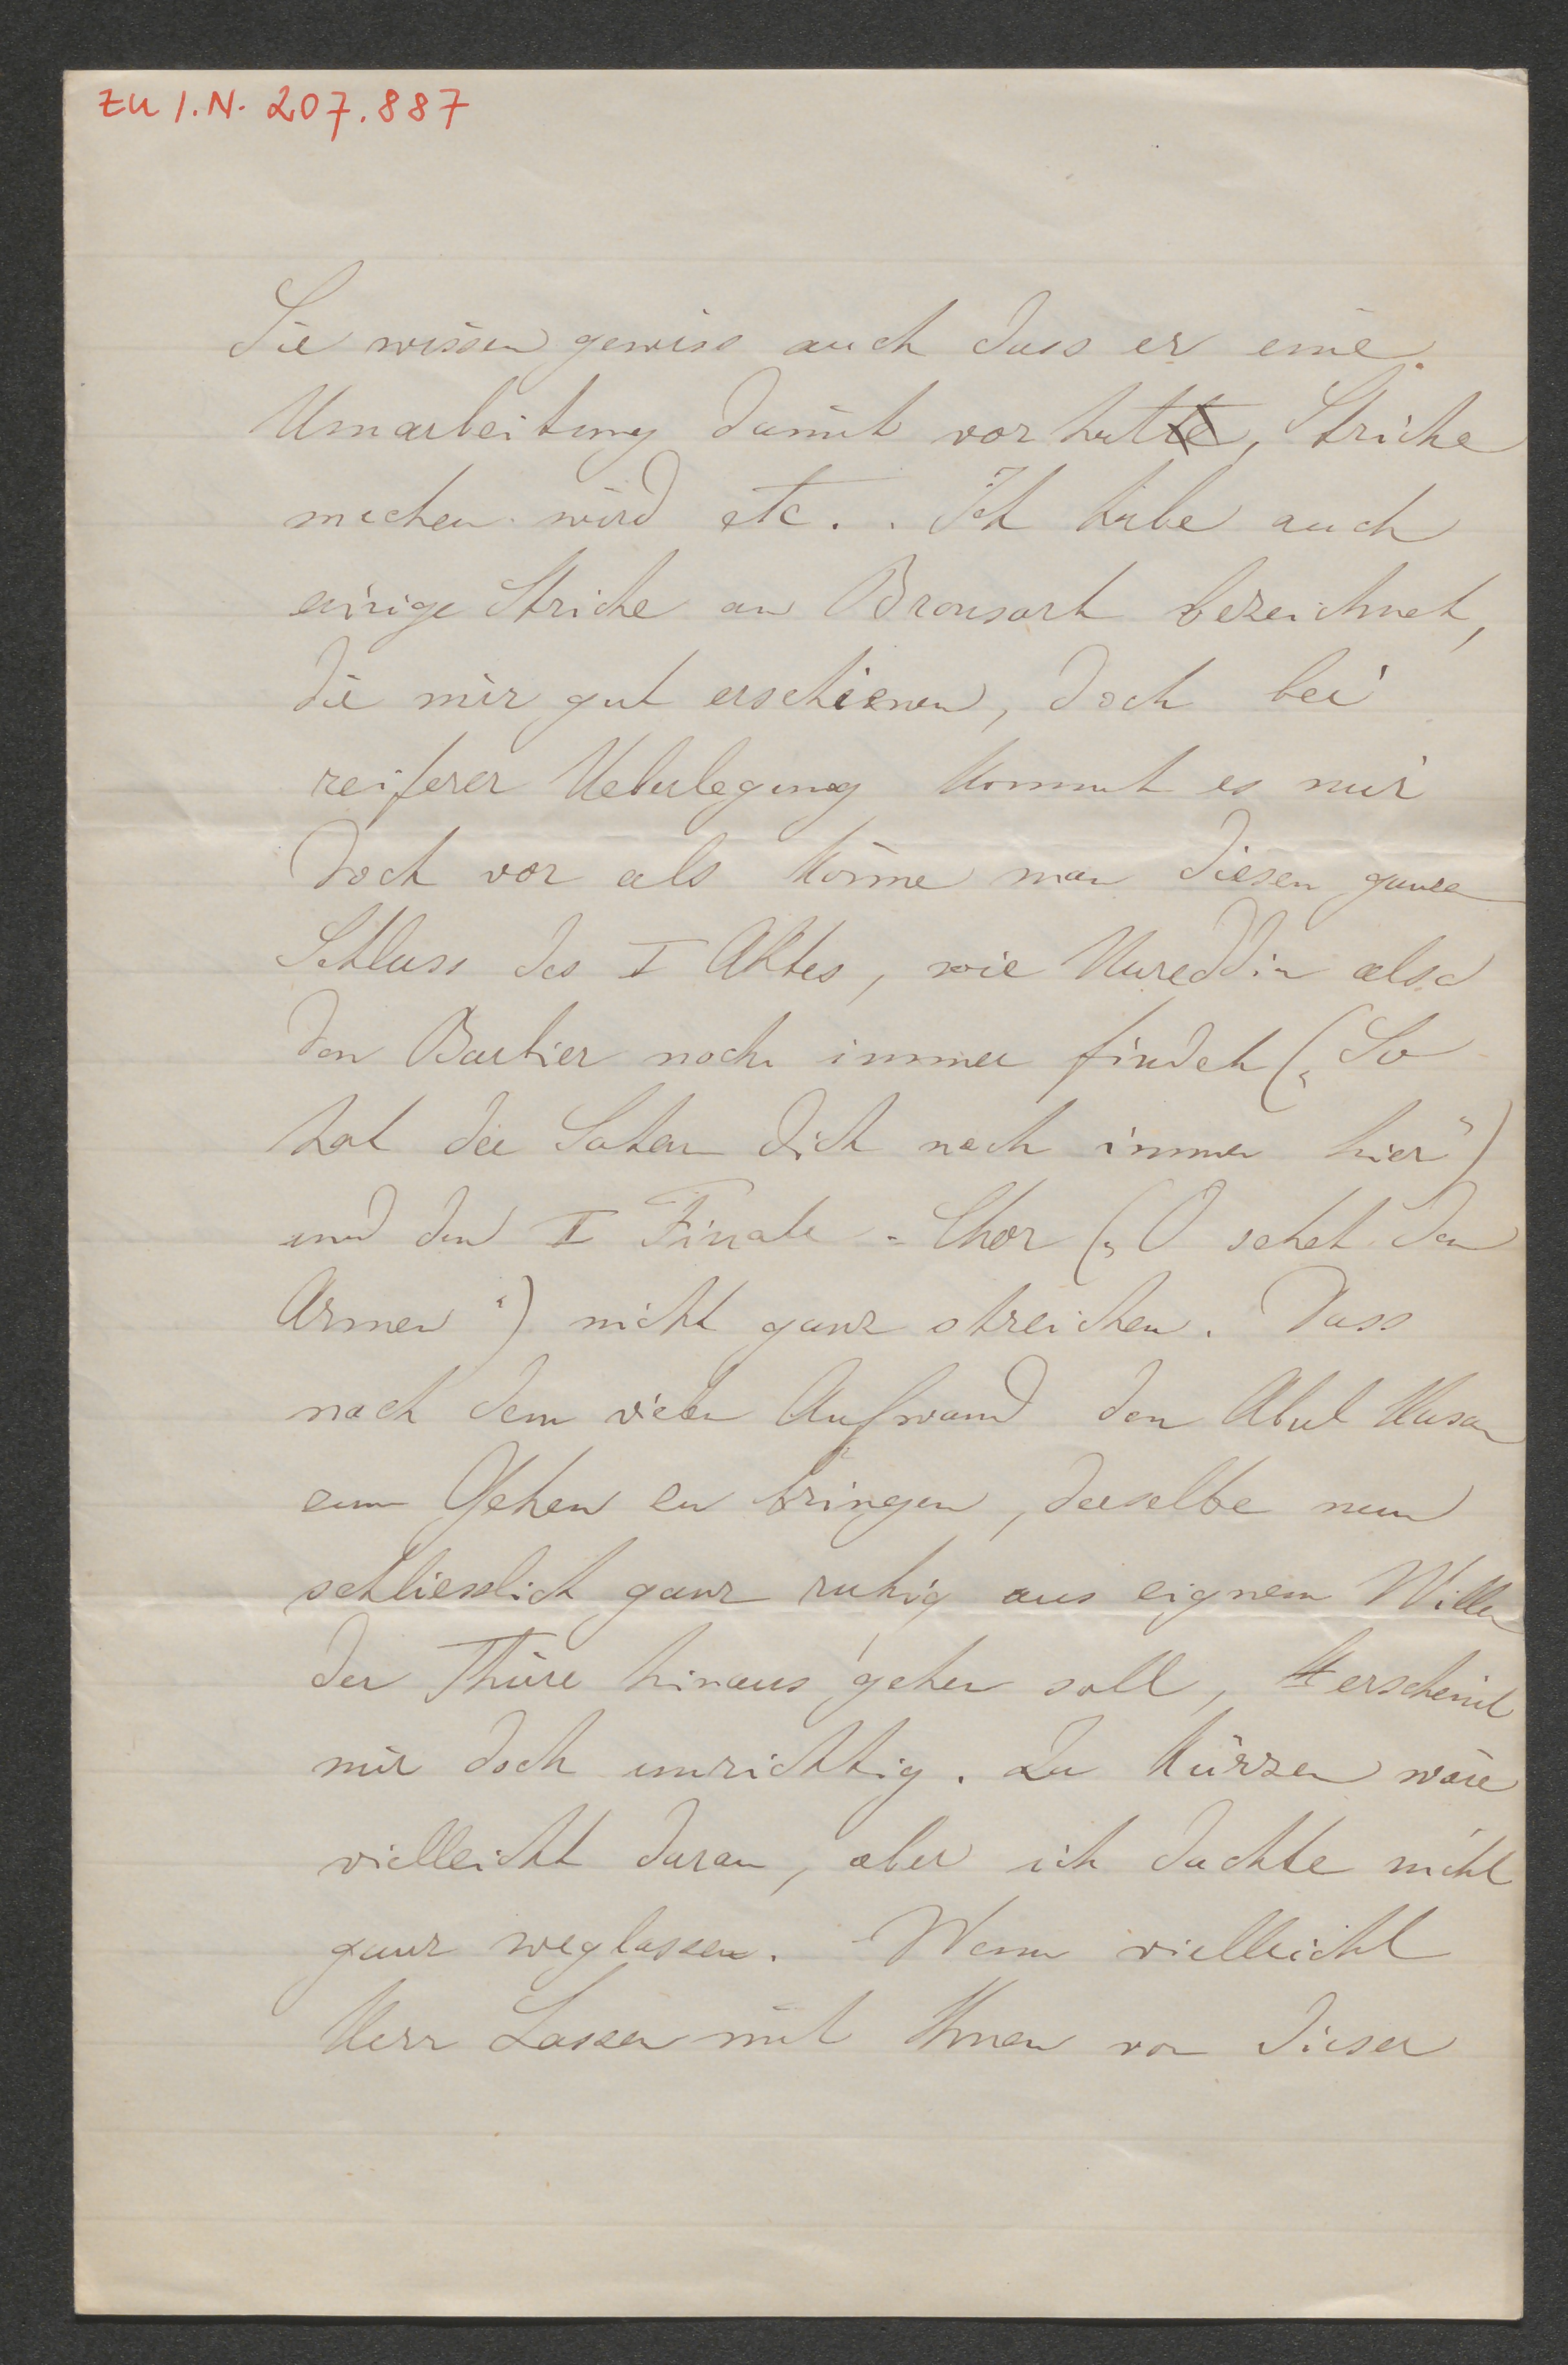 zu I.N. 207.887
Sie wissen gewiss auch dass er eine
Umarbeitung damit vor hat, Striche
machen wird etc.. Ich habe auch
einige Striche an Bronsart bezeichnet,
die mir gut erschienen, doch bei
reiferer Ueberlegung kommt es mir
doch vor als könne man diesen ganzen
Schluss des I Aktes, wie Nureddin also
den Barbier noch immer findet („So
hat der Satan dich noch immer hier“)
und den I Finale-Chor („O sehet den
Armen“) nicht ganz streichen. Dass
nach dem vielen Aufwand den Abul Hasan
zum Gehen zu bringen, derselbe nun
schliesslich ganz ruhig aus eignem Willen
der Thüre hinaus gehen soll, erscheint
mir doch unrichtig. Zu kürzen wäre
vielleicht daran, aber ich dachte nicht
ganz weglassen. Wenn vielleicht
Herr Lassen mit Ihnen von dieser